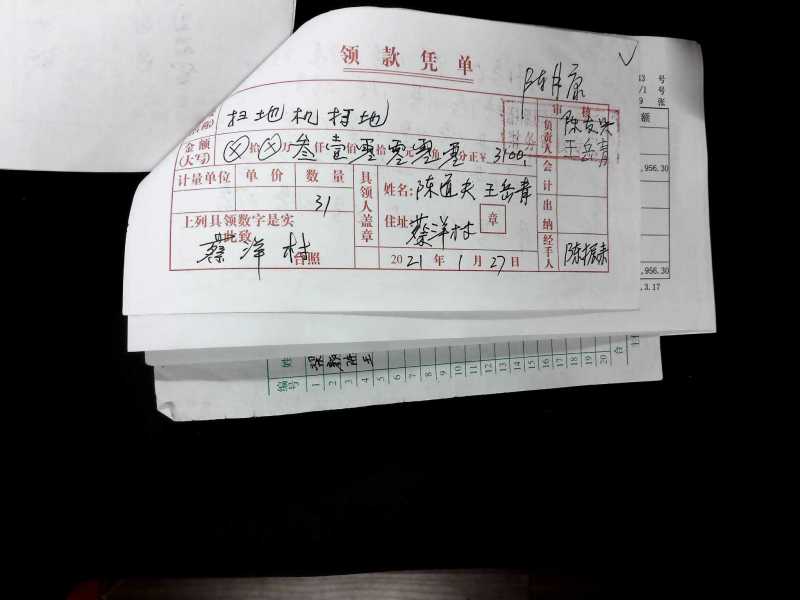 领款凭单
审核
扫地机扫地
金额(大写) ⊗拾⊗万叁仟壹佰零拾零元零角零分正¥ 3100.
计量单位 单价 数量
31
上列具领数字是实
此致
蔡洋村 台照
具领人盖章
姓名: 陈道夫 王岳青
住址: 蔡洋村
章
2021年1月27日
负责人 王岳青
会计
出纳
经手人
号
/1 号
9 张
额
,956.30
,956.30
.3.17
编号
姓
1
2
3
4
5
6
7
8
9
10
11
12
13
14
15
16
17
18
19
20
合